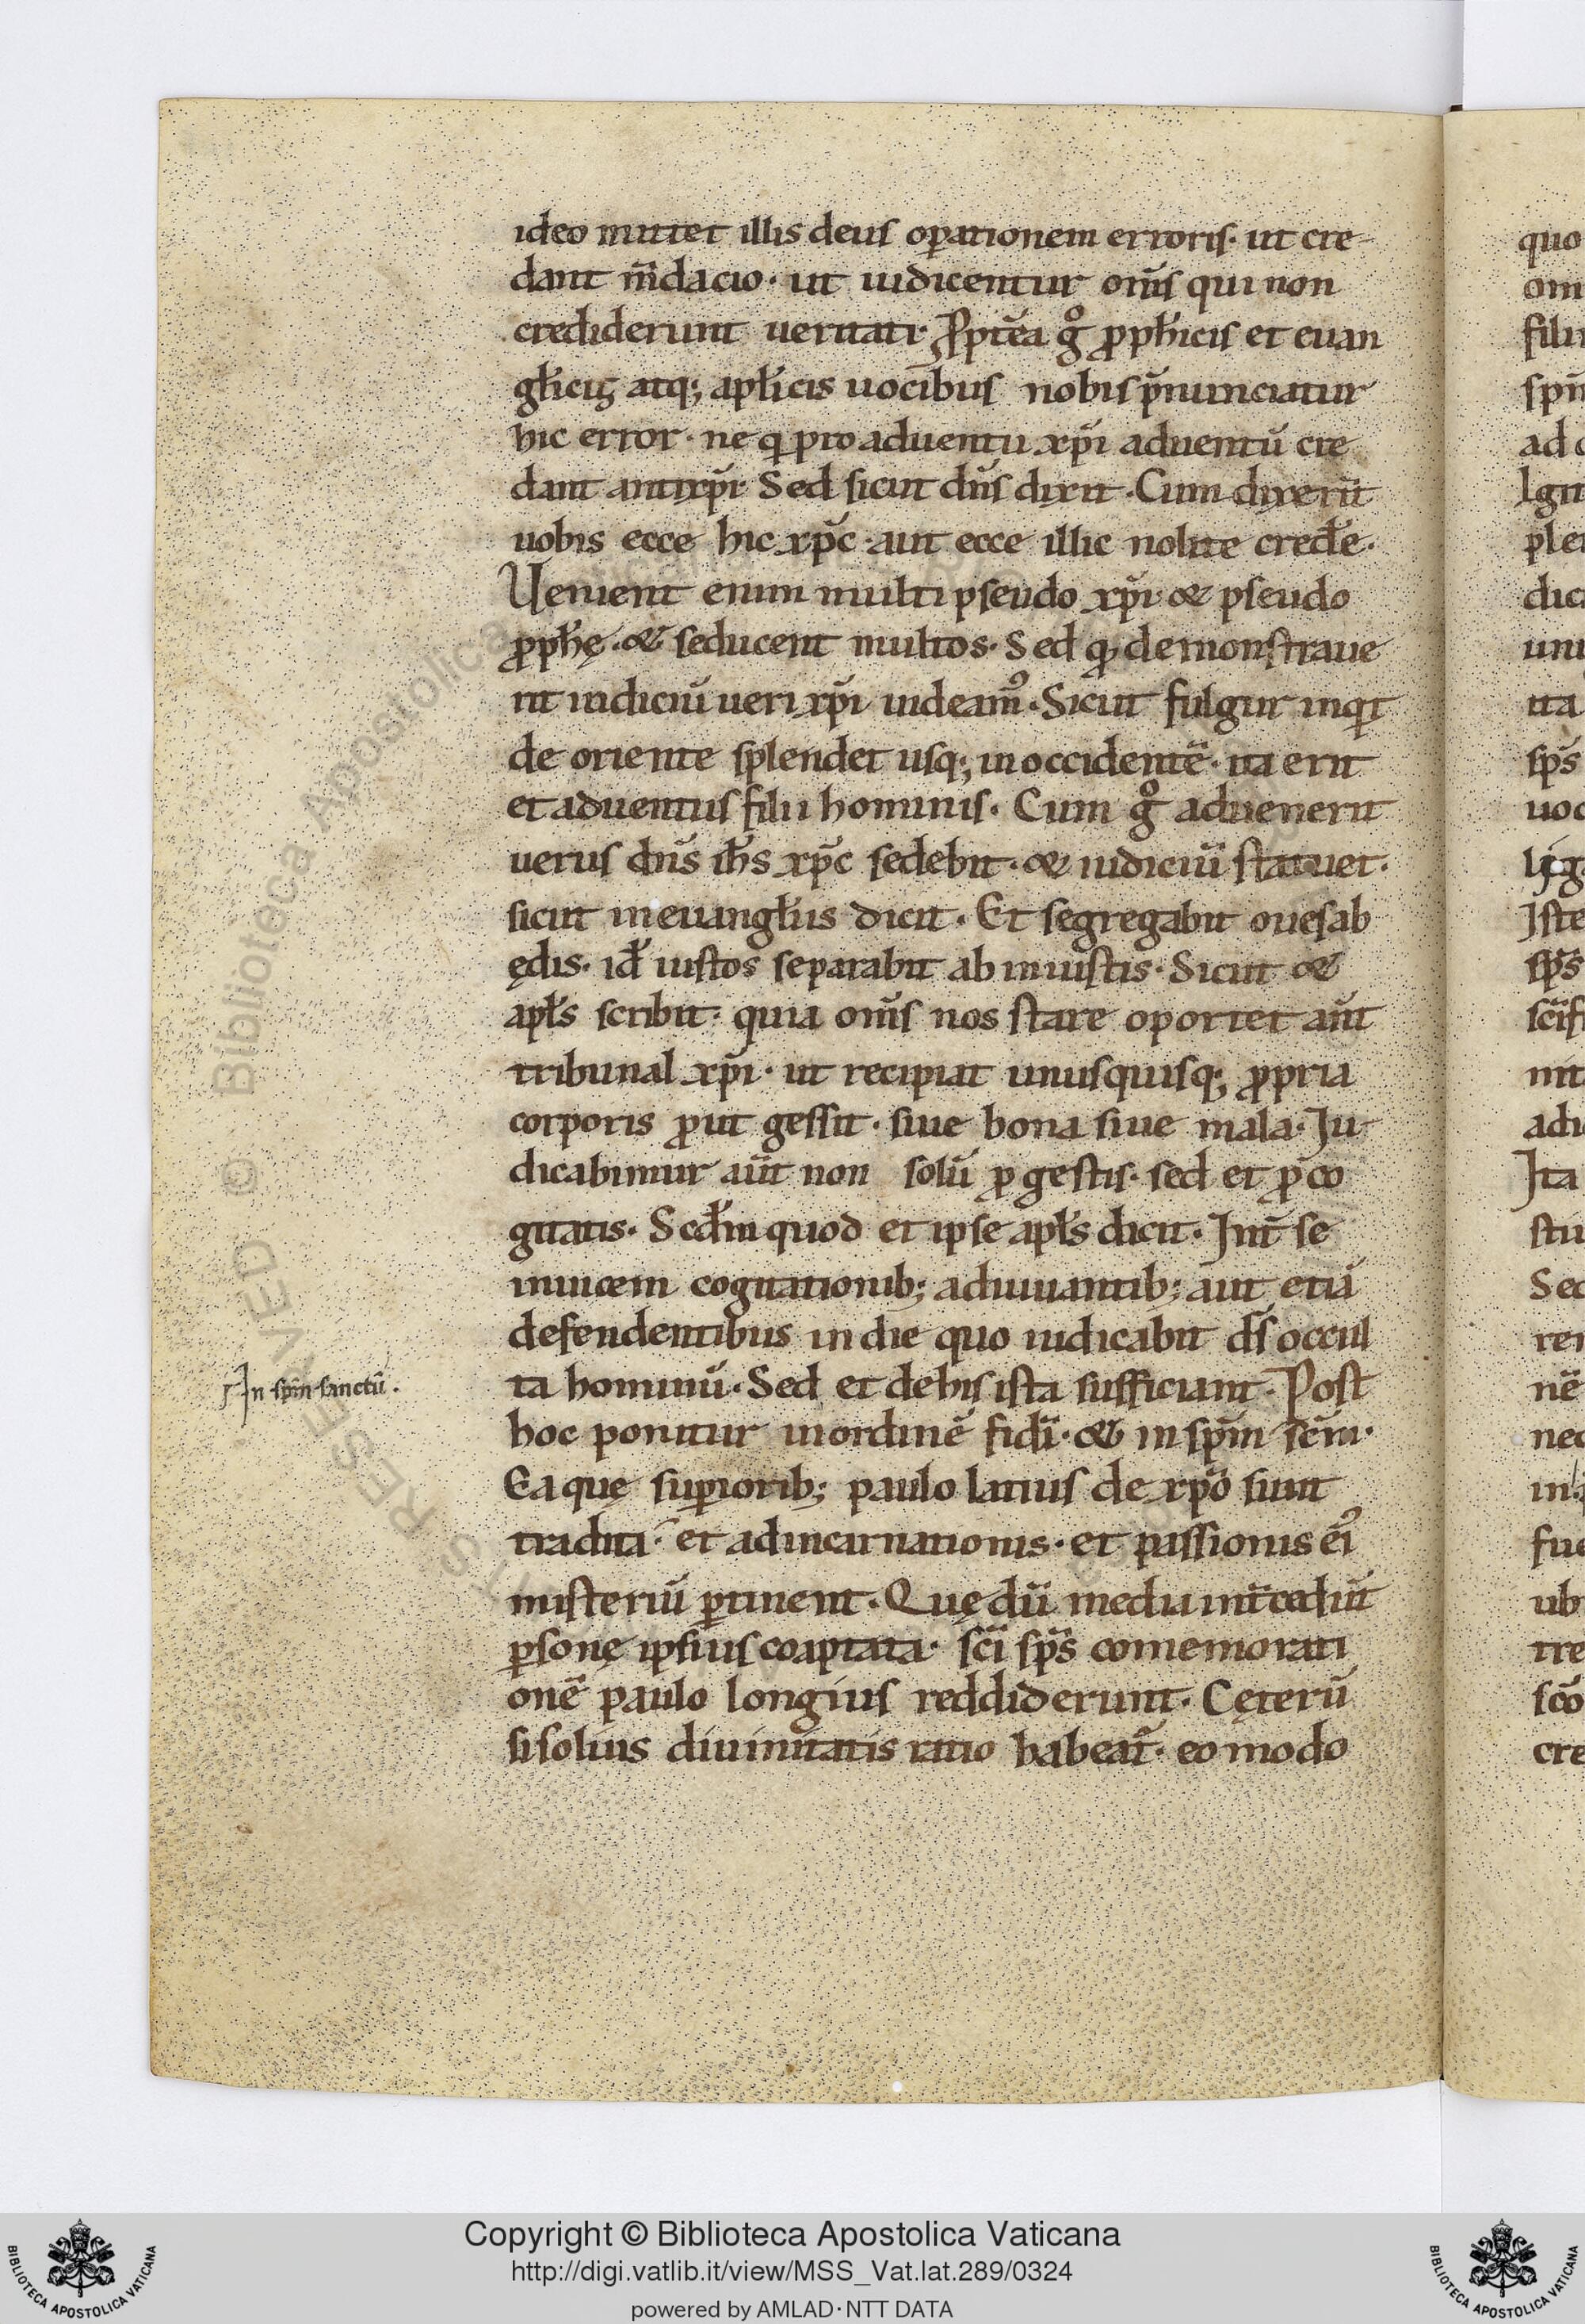 ideo mittet illis deus oꝑationem erroris· ut cre-
dant m̄dacio· ut iudicentur om̄s qui non
crediderunt ueritati· Ꝓpt̄ea gͦ ꝓph̄icis et euan
gl̄icis atq; apl̄icis uocibus nobis p̄nunciatur
hic error· ne qͥ pro aduentu xp̄i aduentū cre
dant antixp̄i· Sed sicut dn̄s dixit· Cum dixerīt
uobis ecce hic xp̄c· aut ecce illic nolite cred̄e·
Uenient enim multi pseudo xp̄i· & pseudo
ꝓph̄ę· & seducent multos· Sed qͦ demonstraue
rit indiciū ueri xp̄i uideam᷒· Sicut fulgur inqͥt
de oriente splendet usq; in occidentē· ita erit
et aduentus filii hominis· Cum gͦ aduenerit
uerus dn̄s ih̄s xp̄c sedebit· & iudiciū statuet·
sicut in euangl̄iis dicit· Et segregabit oues ab
ędis· id̄ iustos separabit ab iniustis· Sicut &
apl̄s scribit· quia om̄s nos stare oportet an̄t
tribunal xp̄i· ut recipiat unusquisq; ꝓpria
corporis ꝓut gessit· siue bona siue mala· Iu-
dicabimur aūt non solū ꝓ gestis· sed et ꝓ co
gitatis· Scd̄m quod et ipse apl̄s dicit· Int̄ se
inuicem cogitationib; adiuuantib; aut etiā
defendentibus in die quo iudicabit ds̄ occul
ta hominū· Sed et de his ista sufficiant· Post
In sp̄m sanctū·
hoc ponitur in ordinē fidī· & in sp̄m sc̄m·
Ea quę suꝑiorib; paulo latius de xp̄o sunt
tradita· et ad incarnationis· et passionis ei᷒
misteriū ꝑtinent· Quę dū media int̄cedūt
ꝑsonę ipsius coaptata· sc̄i sp̄s comemorati
onē paulo longius reddiderunt· Cęterū
si solius diuinitatis ratio habeat̄· eo modo
Copyright © Biblioteca Apostolica Vaticana
http://digi.vatlib.it/view/MSS_Vat.lat.289/0324
powered by AMLAD·NTT DATA
BIBLIOTECA APOSTOLICA VATICANA
BIBLIOTECA APOSTOLICA VATICANA